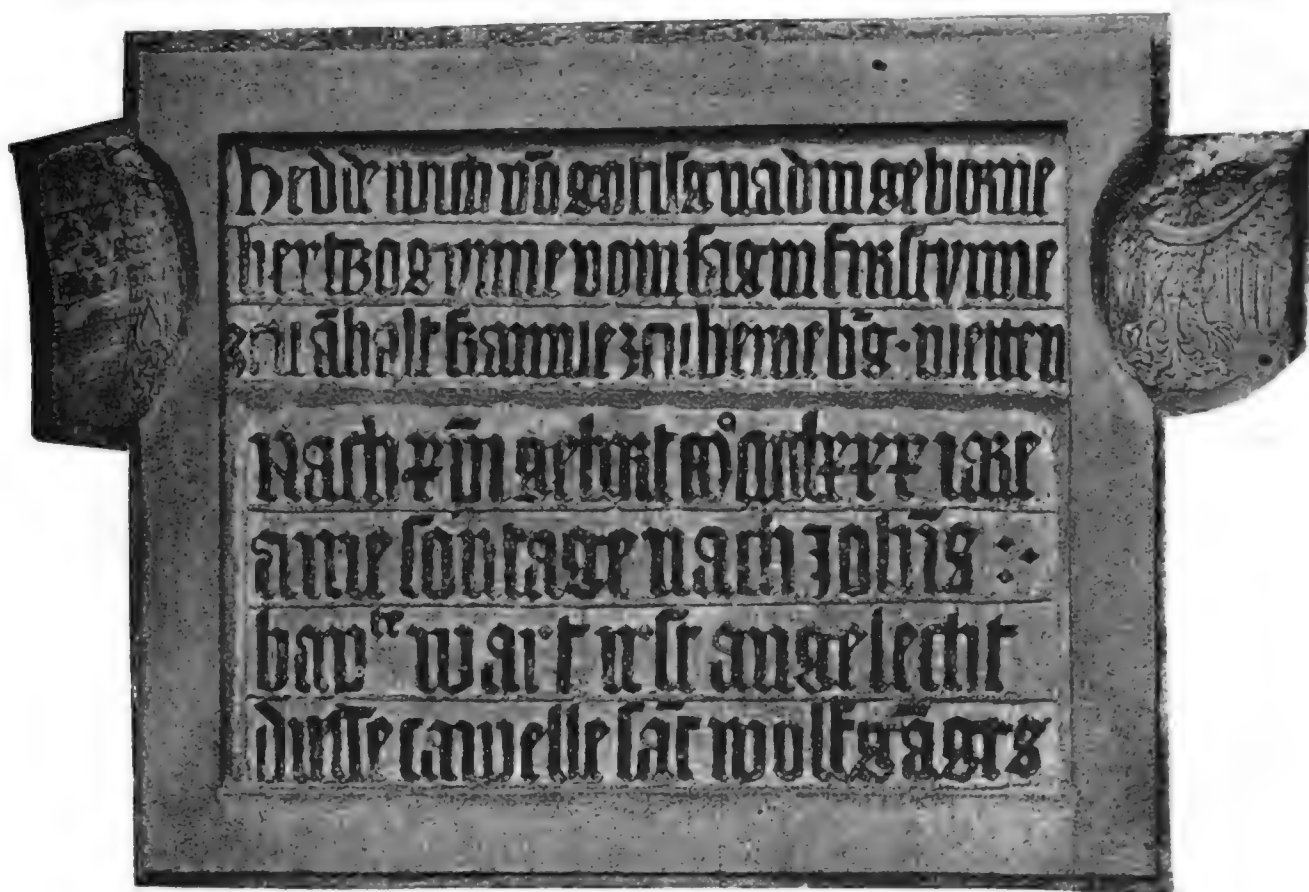 Heddewich võ gotisgnadin geborne
hertzogynne vom sagin furstynne
zcu ãhalt frauwe zcu berneb̄g · nietten
Nach xp̄i geburt mº cccclxxx iare
ame sõntage nach Joh̄is :·
bapᵗᵉ wart irst angelecht
dusse capuelle sãt wolfgãges